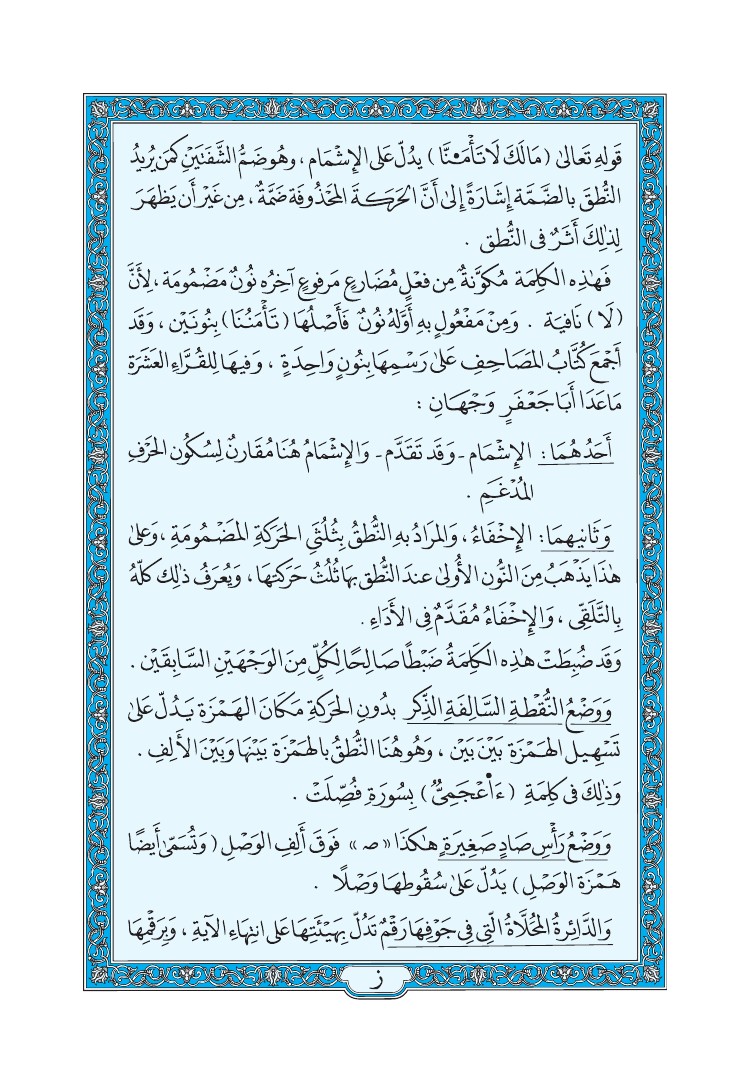 قَولِهِ تَعَالىٰ (مَالَكَ لَا تَأۡمَ۬نَّا) يَدُلّ عَلى الإِشۡمَام ، وهُوضَمُّ الشَّفَتَيْنِ كمَن يُرِيدُ
النُّطقَ بالضَّمَّة إشَارَةً إِلىٰ أَنَّ الحَرَكَةَ المَحْذُوفَةَ ضَمَّةٌ ، مِن غَيْرِ أَن يَظهَرَ
لِذٰلِكَ أَثَرٌ فى النُّطق .
فَهٰذِهِ الكَلِمَة مُكوَّنَةٌ مِن فعْلٍ مُضَارِع مَرفوعٍ آخِرُه نُونٌ مَضْمُومَة ، لِأَنَّ
(لَا) نَافيَة . وَمِنْ مَفعُولٍ بهِ أوَّلهُ نُونٌ فَأَصْلُهَا (تَأۡمَنُنَا) بِنُونَيْن ، وَقَد
أجْمَعَ كُتَّابُ المَصَاحِفِ عَلىٰ رَسْمِهَا بِنُونٍ وَاحِدَةٍ ، وَفيهَا للقُرَّاءِ العَشَرَة
مَاعَدَا أَبَا جَعْفَرٍ وَجْهَانِ :
أَحَدُهُمَا : الإِشۡمَام - وَقَد تَقَدَّم - وَالإِشۡمَامُ هُنَا مُقَارنٌ لِسُكُون الحَرْفِ
المُدْغَمِ .
وَثَانِيهِمَا : الإِخْفَاءُ ، وَالمرَادُ بهِ النُّطقُ بِثُلُثَيِ الحَرَكَةِ المَضْمُومَةِ ، وَعَلىٰ
هٰذا يَذْهَبُ مِنَ النُّون الأُولىٰ عِندَ النُّطق بهَا ثُلُثُ حَرَكتِهَا ، وَيُعرَفُ ذٰلِك كلُّهُ
بِالتَّلَقِّى ، وَالإِخْفَاءُ مُقَدَّمٌ فِى الأَدَاءِ .
وَقَد ضُبِطَتْ هٰذِهِ الكَلِمَةُ ضَبْطًا صَالحًا لِكُلٍّ مِنَ الوَجْهَيْنِ السَّابِقَيْن .
وَوَضْعُ النُّقْطَةِ السَّالِفَةِ الذِّكر بدُونِ الحَرَكَةِ مَكَانَ الهَمْزَة يَدُلّ عَلىٰ
تَسْهِيل الهَمْزَة بَيْنَ بَيْن ، وَهُوهُنَا النُّطْقُ بالهَمْزَة بَيْنَهَا وَبَيْنَ الأَلِفِ .
وَذٰلِكَ فى كلِمَةِ (ءَا۬عۡجَمِىٌّ) بِسُورَةِ فُصِّلَتْ .
وَوَضْعُ رَأْسِ صَادٍ صَغِيرَةٍ هٰكَذَا « صـ » فَوْقَ أَلِفِ الوَصْلِ ( وَتُسَمّىٰ أيضًا
هَمْزَةَ الوَصْلِ ) يَدُلُّ عَلىٰ سُقُوطهَا وَصْلًا .
وَالدَّائِرةُ المُحَلَّاةُ الَّتِى فى جَوْفِهَا رَقْمٌ تَدُلّ بِهَيْئَتِهَا عَلى انتِهَاءِ الآيَةِ ، وَبِرَقْمِهَا
ز